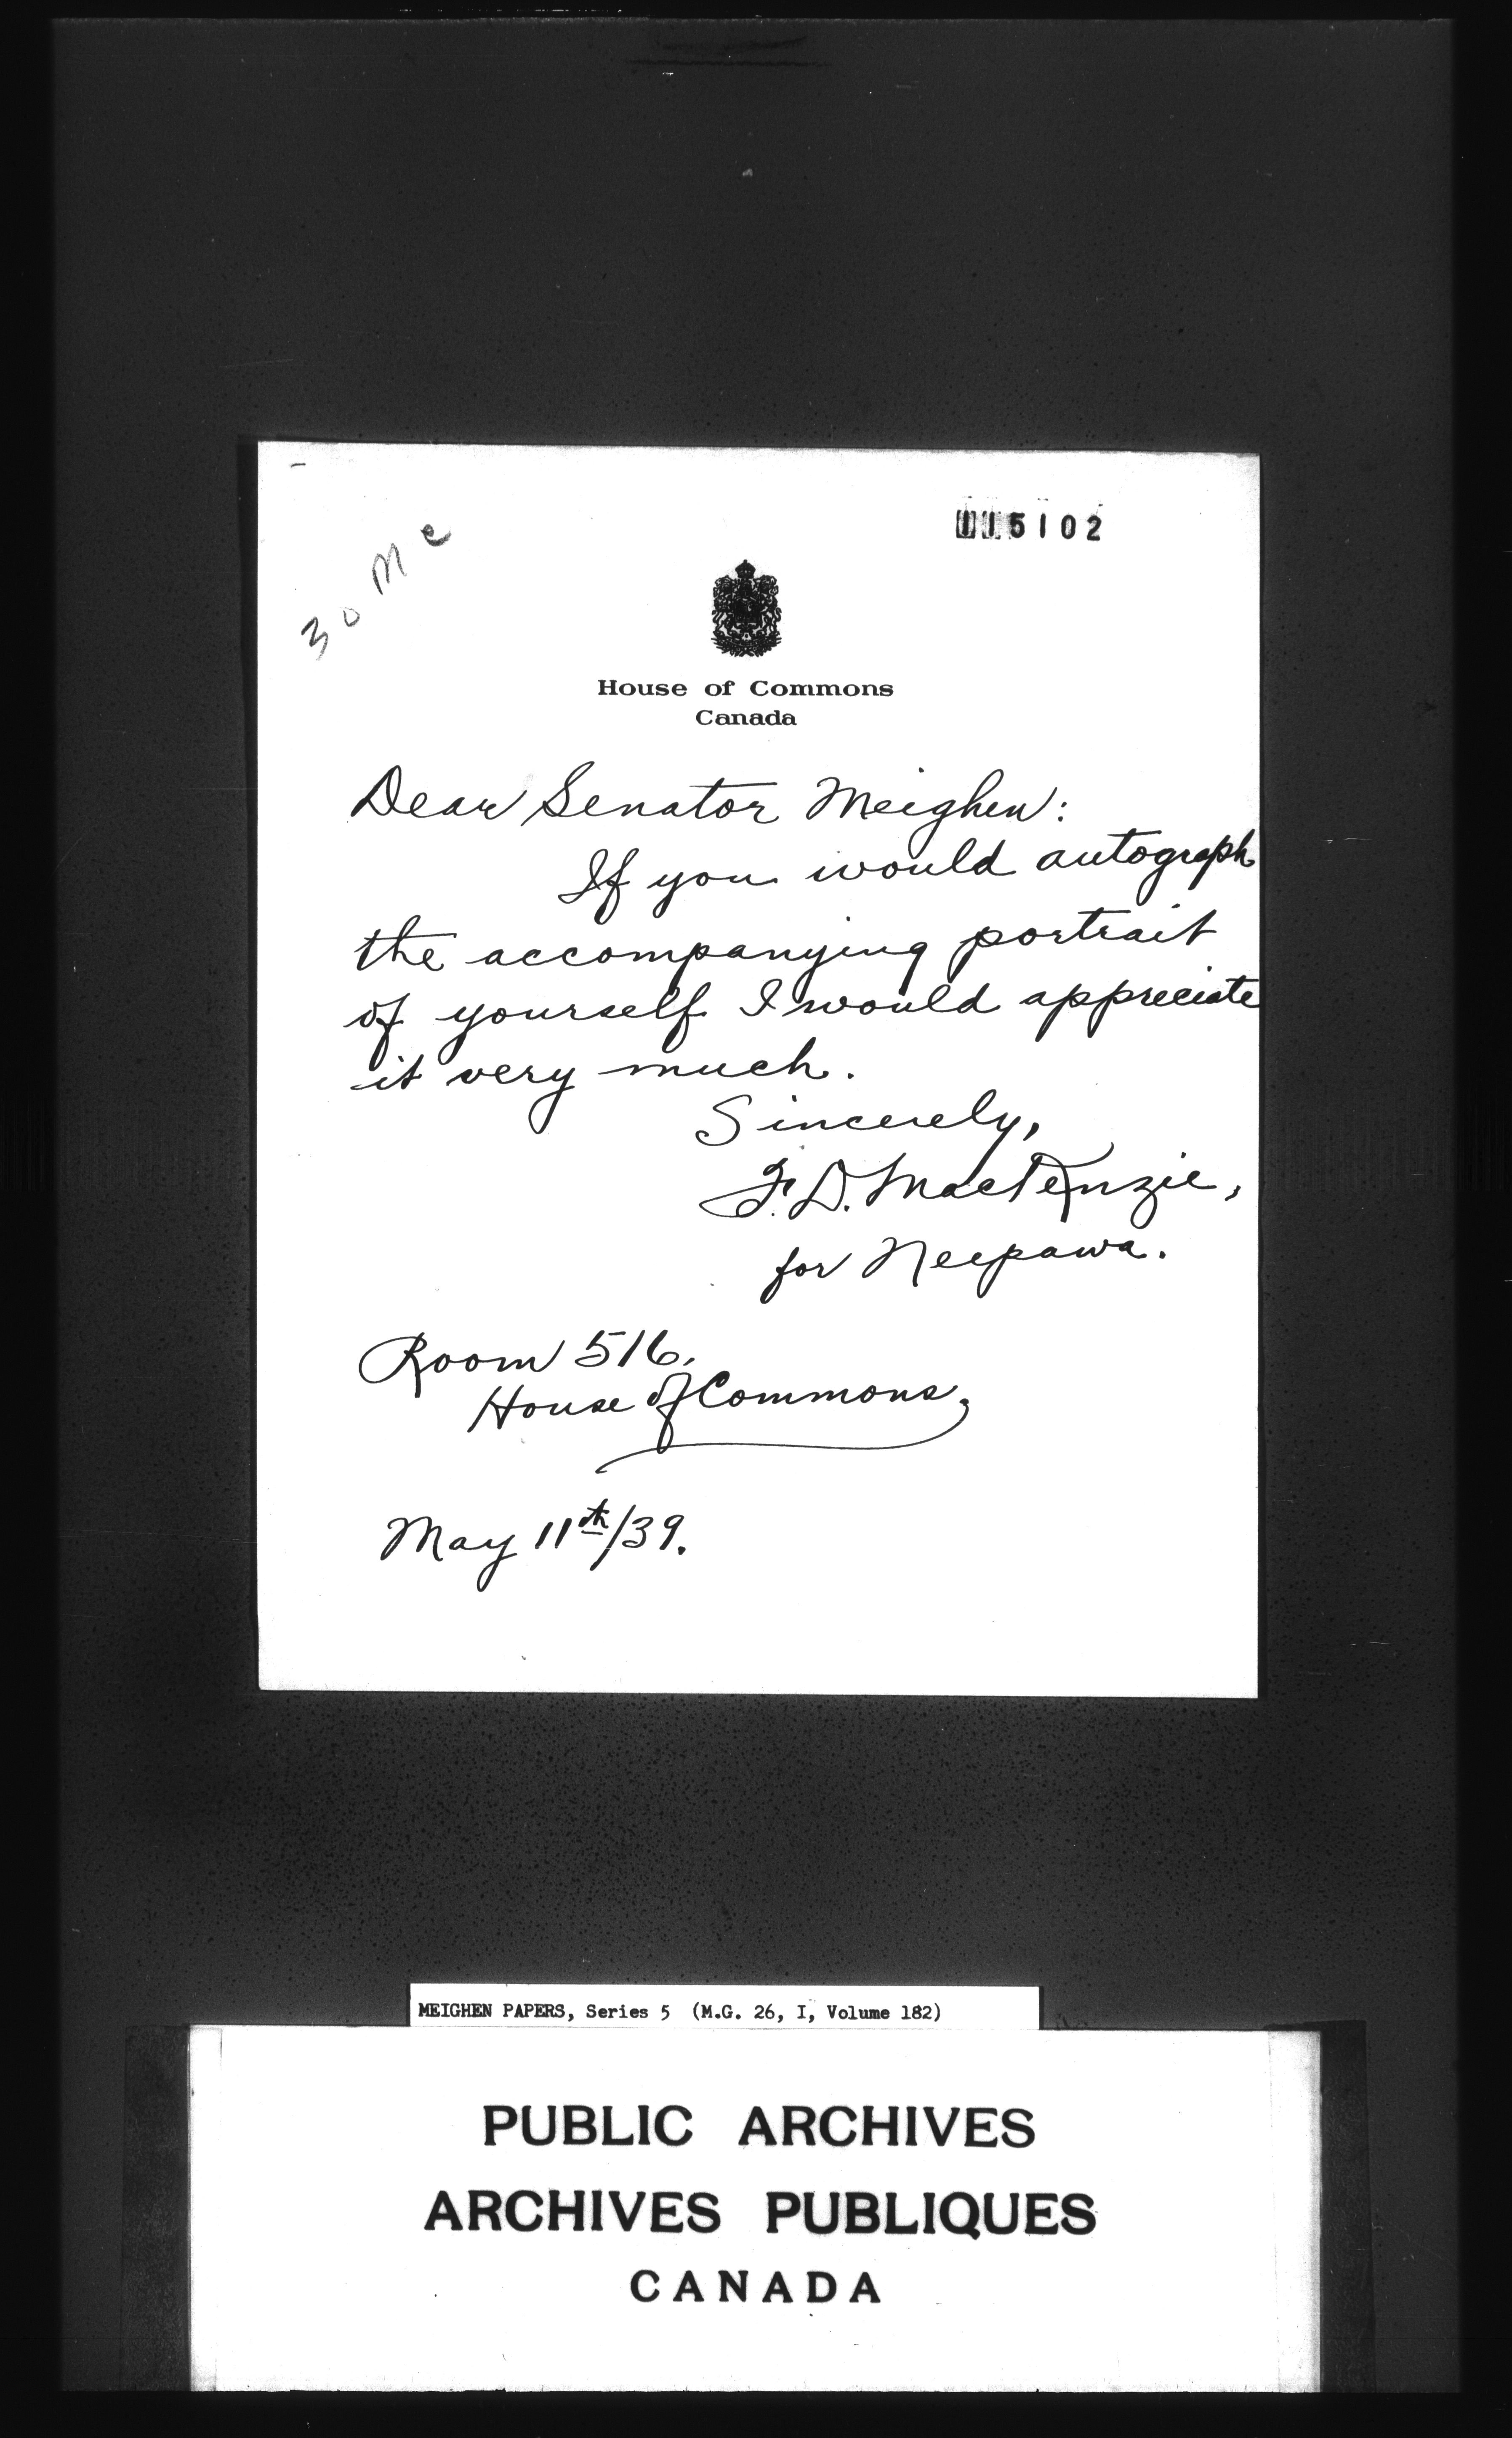 30 Mc
115102
House of Commons
Canada
Dear Senator Meighen:
If you would autograph
the accompanying portrait
of yourself I would appreciate
it very much.
Sincerely,
F. D. MacKenzie,
for Neepawa.
Room 516,
House of Commons,
May 11th/39.
MEIGHEN PAPERS, Series 5 (M.G. 26, I, Volume 182)
PUBLIC ARCHIVES
ARCHIVES PUBLIQUES
CANADA